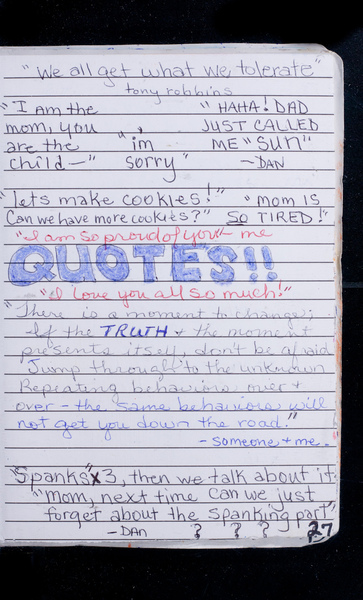 "We all get what we tolerate"
tony robbins
"I am the mom, you are the child—"
"im sorry"
"HAHA! DAD JUST CALLED ME "SUN"
—DAN
"Lets make cookies!"
Can we have more cookies?"
"Mom IS SO TIRED!"
"I am so proud of you"- me
QUOTES!!
"I love you all so much!"
"There is a moment to change;
If the TRUTH & the moment
presents itself, don't be afraid
Jump through to the unknown
Repeating behaviors over &
over - the same behaviors will
not get you down the road."
- someone & me.
"Spanks" x3, then we talk about it
"Mom, next time can we just
forget about the spanking part"
-DAN ? ? ?
27